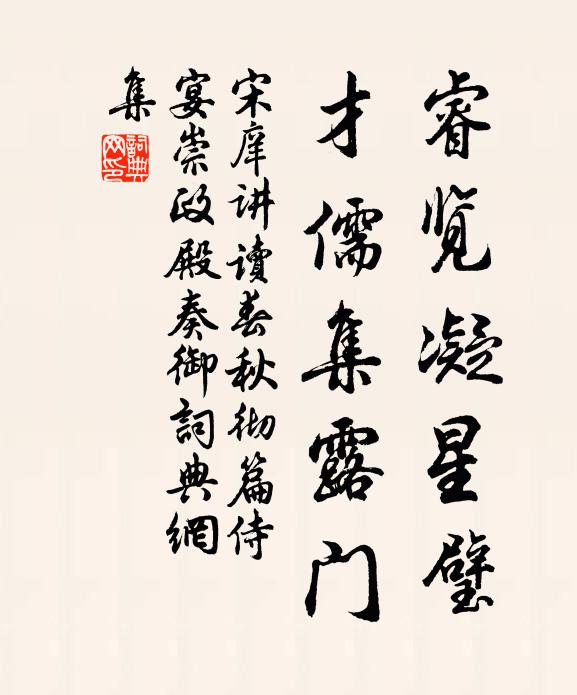 睿览凝星璧
才儒集露门
宋庠讲读春秋彻篇侍
宴崇政殿奏御詞典網
集
詞典网印